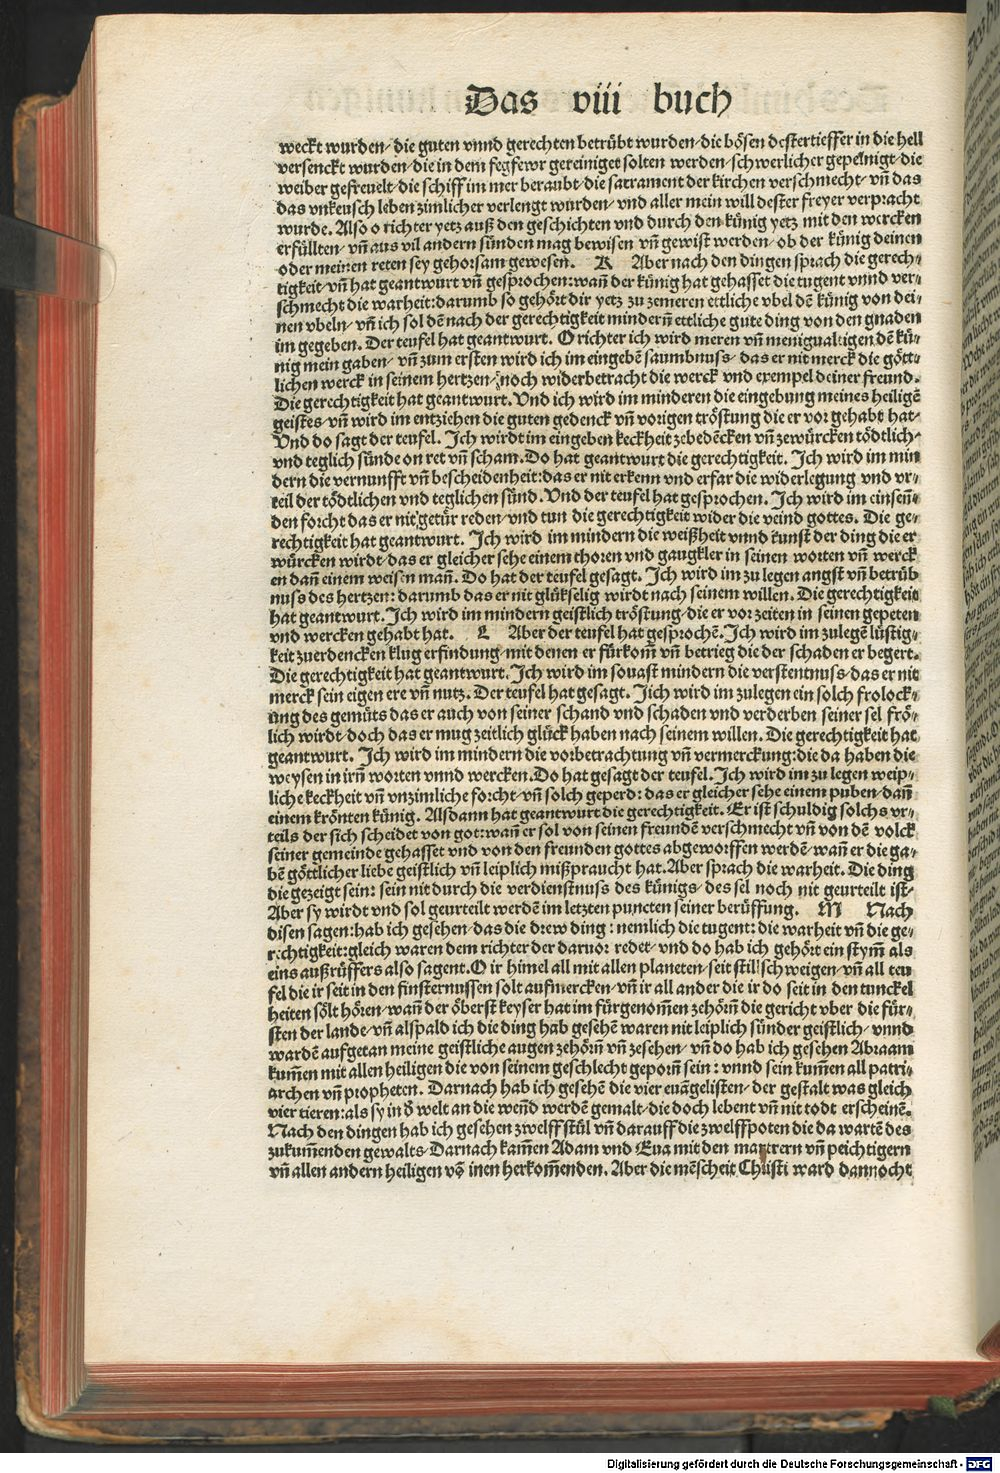 Das viii buch
weckt wurden/ die guten vnnd gerechten betrübt wurden/ die bösen destertieffer in die hell
versenckt wurden/ die in dem fegfewr gereiniget solten werden/ schwerlicher gepeinigt/ die
weiber gefreuelt/ die schiff im mer beraubt/ die sacrament der kirchen verschmecht/ vn̄ das
das vnkeusch leben zimlicher verlengt wurden/ vnd aller mein will dester freyer verpracht
wurde. Also o richter yetz auß den geschichten vnd durch den künig yetz mit den wercken
erfüllten/ vn̄ aus vil andern sünden mag bewisen vn̄ gewist werden/ ob der künig deinen
oder meinen reten sey gehorsam gewesen. K Aber nach den dingen sprach die gerech⸗
tigkeit/ vn̄ hat geantwurt vn̄ gesprochen: wan̄ der künig hat gehasset die tugent vnnd ver⸗
schmecht die warheit: darumb so gehört dir yetz zu zemeren ettliche vbel dē künig von dei⸗
nen vbeln/ vn̄ ich sol dē nach der gerechtigkeit mindern̄ ettliche gute ding von den gnaden
im gegeben. Der teufel hat geantwurt. O richter ich wird meren vn̄ menigualtigen dē kü⸗
nig mein gaben/ vn̄ zum ersten wird ich im eingebē saumbnuss/ das er nit merck die gött⸗
lichen werck in seinem hertzen/ noch widerbetracht die werck vnd exempel deiner freund.
Die gerechtigkeit hat geantwurt. Vnd ich wird im minderen die eingebung meines heiligē
geistes/ vn̄ wird im entziehen die guten gedenck vn̄ vorigen tröstung die er vor gehabt hat/
Vnd do sagt der teufel. Ich wirdt im eingeben keckheit zebedēcken vn̄ zewürcken tödtlich/
vnd teglich sünde on ret vn̄ scham. Do hat geantwurt die gerechtigkeit. Ich wird im min
dern die vernunfft vn̄ bescheidenheit: das er nit erkenn vnd erfar die widerlegung vnd vr⸗
teil der tödtlichen vnd teglichen sünd. Vnd der teufel hat gesprochen. Ich wird im einsen̄⸗
den forcht das er nit getür reden/ vnd tun die gerechtigkeit wider die veind gottes. Die ge⸗
rechtigkeit hat geantwurt. Ich wird im mindern die weißheit vnnd kunst der ding die er
würcken wirdt/ das er gleicher sehe einem thoren vnd gaugkler in seinen worten vn̄ werck
en dan̄ einem weisen man̄. Do hat der teufel gesagt. Ich wird im zu legen angst vn̄ betrüb
nuss des hertzen: darumb das er nit glükselig wirdt nach seinem willen. Die gerechtigkeit
hat geantwurt. Ich wird im mindern geistlich tröstung/ die er vor zeiten in seinen gepeten
vnd wercken gehabt hat. L Aber der teufel hat gesprochē. Ich wird im zulegē lüstig⸗
keit zuerdencken klug erfindung/ mit denen er fürkom̄ vn̄ betrieg die der schaden er begert.
Die gerechtigkeit hat geantwurt. Ich wird im souast mindern die verstentnuss/ das er nit
merck sein eigen ere vn̄ nutz. Der teufel hat gesagt. Jich wird im zulegen ein solch frolock⸗
ung des gemüts das er auch von seiner schand vnd schaden vnd verderben seiner sel frö⸗
lich wirdt/ doch das er mug zeitlich glück haben nach seinem willen. Die gerechtigkeit hat
geantwurt. Ich wird im mindern die vorbetrachtung vn̄ vermerckung: die da haben die
weysen in irn̄ worten vnnd wercken. Do hat gesagt der teufel. Ich wird im zu legen weip⸗
liche keckheit vn̄ vnzimliche forcht/ vn̄ solch geperd: das er gleicher sehe einem puben/ dan̄
einem krönten künig. Alsdann hat geantwurt die gerechtigkeit. Er ist schuldig solchs vr⸗
teils der sich scheidet von got: wan̄ er sol von seinen freundē verschmecht vn̄ von dē volck
seiner gemeinde gehasset vnd von den freunden gottes abgeworffen werdē/ wan̄ er die ga⸗
bē göttlicher liebe geistlich vn̄ leiplich mißpraucht hat. Aber sprach die warheit. Die ding
die gezeigt sein: sein nit durch die verdienstnuss des künigs/ des sel noch nit geurteilt ist/
Aber sy wirdt vnd sol geurteilt werdē im letzten puncten seiner berüffung. M Nach
disen sagen: hab ich gesehen/ das die drew ding: nemlich die tugent: die warheit vn̄ die ge⸗
rechtigkeit: gleich waren dem richter der daruor redet/ vnd do hab ich gehört ein stym̄ als
eins außrüffers also sagent. O ir himel all mit allen planeten/ seit stillschweigen/ vn̄ all teu
fel die ir seit in den finsternussen solt aufmercken/ vn̄ ir all ander die ir do seit in den tunckel
heiten sölt hören/ wan̄ der öberst keyser hat im fürgenom̄en zehörn̄ die gericht vber die für⸗
sten der lande/ vn̄ alspald ich die ding hab gesehē waren nit leiplich sünder geistlich/ vnnd
wardē aufgetan meine geistliche augen zehörn̄ vn̄ zesehen/ vn̄ do hab ich gesehen Abraam
kum̄en mit allen heiligen die von seinem geschlecht geporn̄ sein: vnnd sein kum̄en all patri⸗
archen vn̄ propheten. Darnach hab ich gesehē die vier euāgelisten/ der gestalt was gleich
vier tieren: als sy in ð welt an die wen̄d werdē gemalt/ die doch lebent vn̄ nit todt erscheinē.
Nach den dingen hab ich gesehen zwelff stül vn̄ darauff die zwelffpoten die da wartē des
zukum̄enden gewalts/ Darnach kam̄en Adam vnd Eua mit den martrern vn̄ peichtigern
vn̄ allen andern heiligen vō inen herkom̄enden. Aber die mēscheit Christi ward dannocht
Digitalisierung gefördert durch die Deutsche Forschungsgemeinschaft - DFG